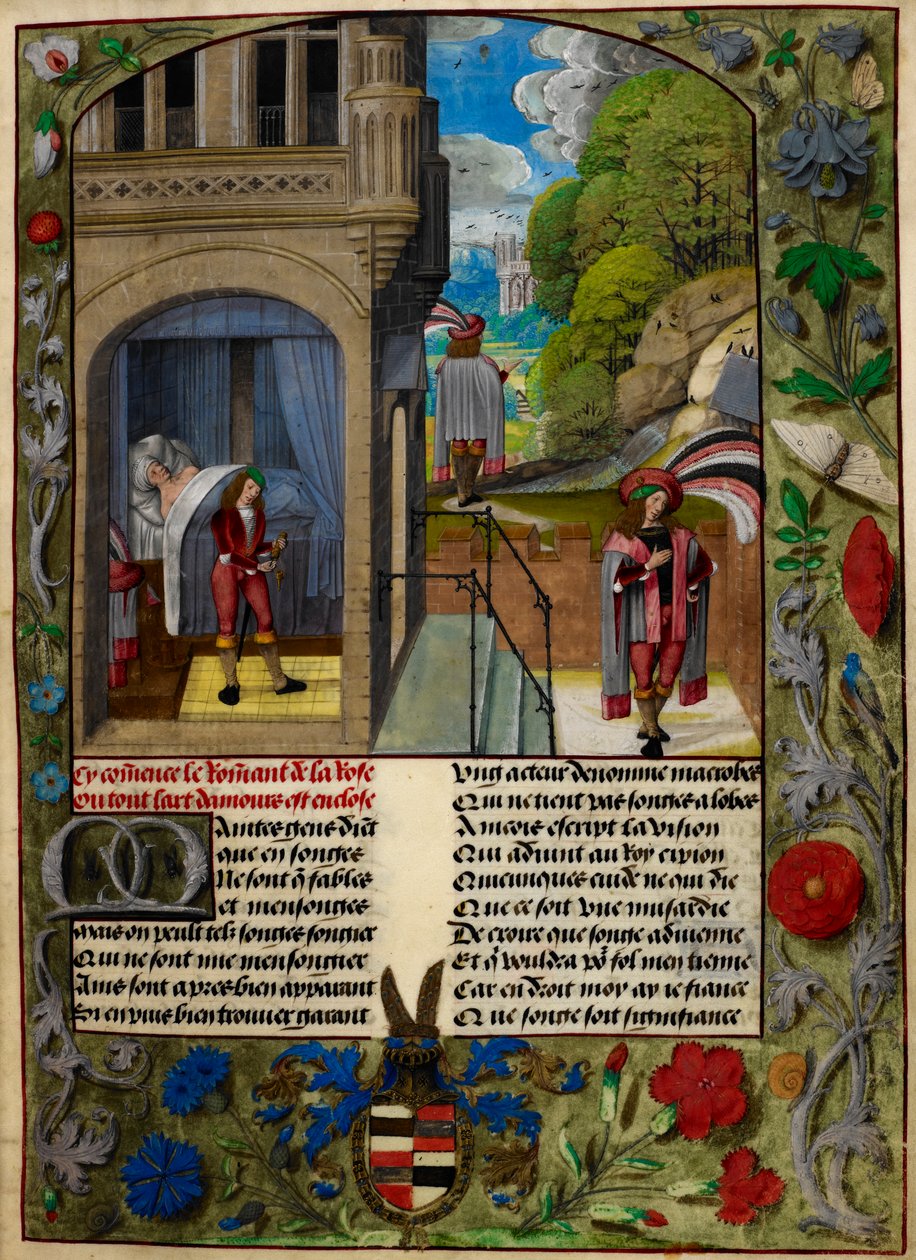 Cy cõmence le Rõmant de la Rose
Ou tout lart damours est enclose
Maintes gens dĩet
que en songes
Ne sont q̃ fables
et mensonges
mais on peult telz songes songier
Qui ne sont mie mensongier
Ains sont apres bien apparant
Si en puis bien trouuer garant
Vng acteur denomme macrobes
Qui ne tient pas songes a lobes
Ancois escript la vision
Qui aduint au Roy cipion
Quicunques cuide ne qui die
Que ce soit vne musardie
De croire que songe aduienne
Et q̃ vouldra po᷑ fol men tienne
Car en droit moy ay ie fiance
Que songe soit signifiance